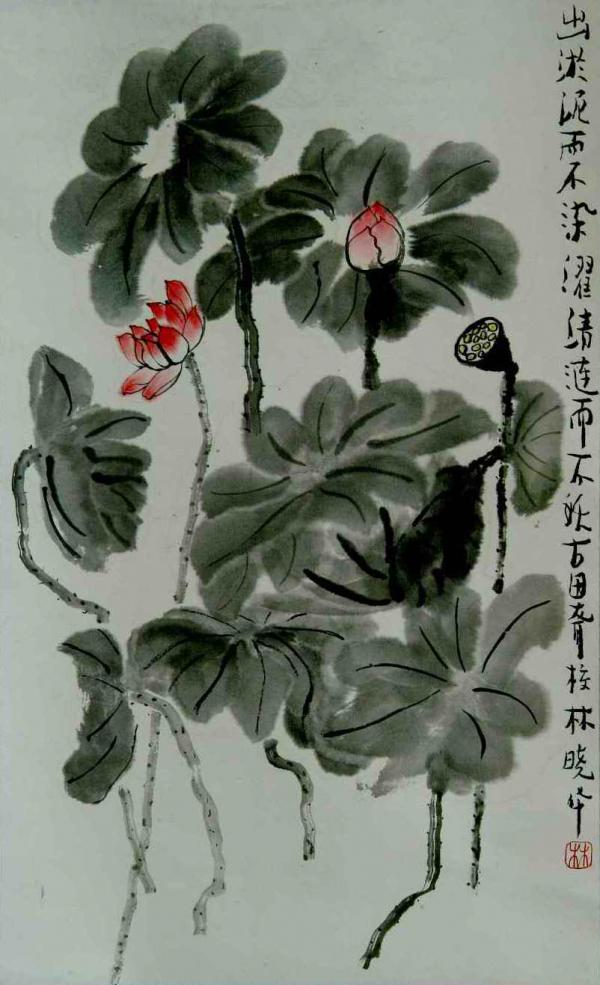 出淤泥而不染濯清涟而不妖古田育校林晓华
林